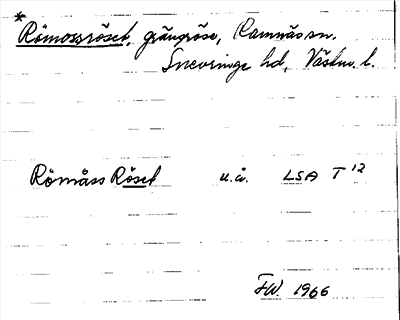 * Römossröset, gränsröse, Ramnäs sn.
Snevringe hd, Västm. l.
Römåss Röset u.å. LSA T 12
FW. 1966